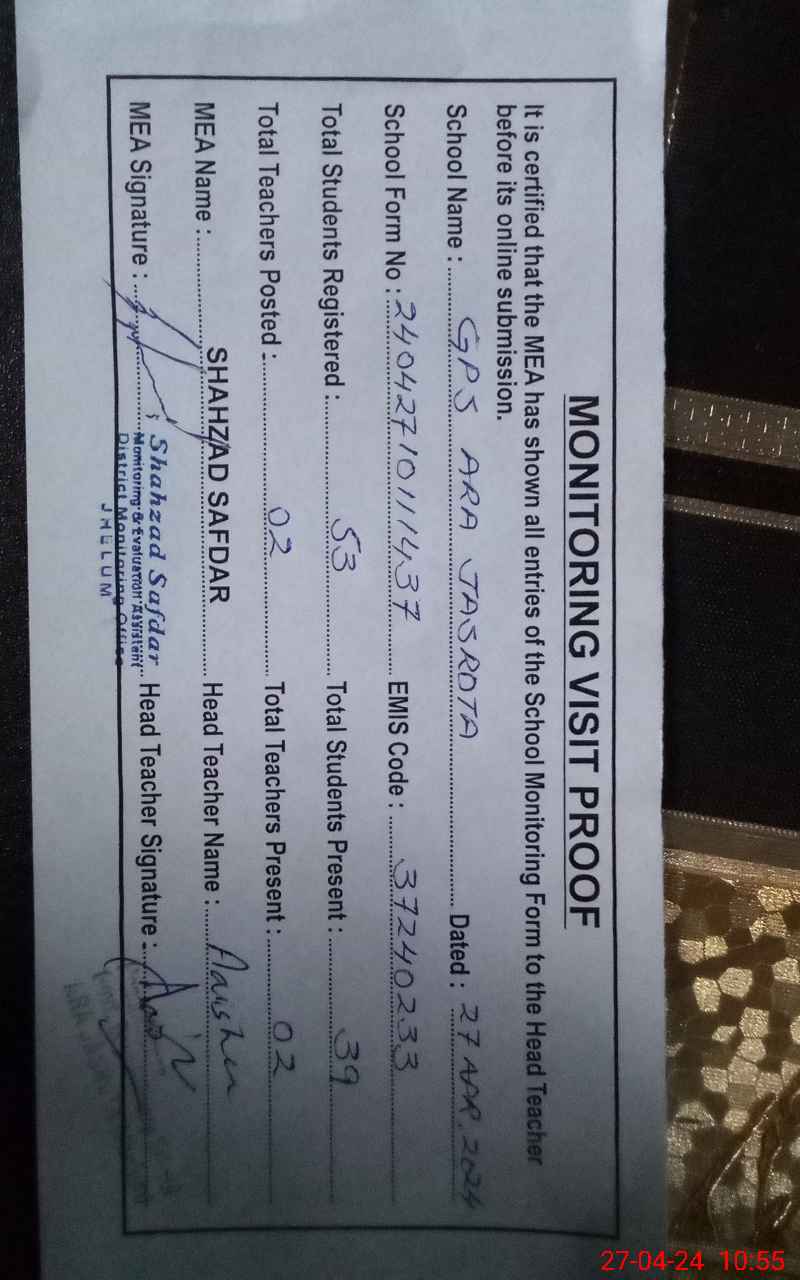 MONITORING VISIT PROOF
It is certified that the MEA has shown all entries of the School Monitoring Form to the Head Teacher
before its online submission.
School Name : GPS ARA JASROTA Dated : 27 APR. 2024
School Form No : 24042710111437 EMIS Code : 37240233
Total Students Registered : 53 Total Students Present : 39
Total Teachers Posted : 02 Total Teachers Present : 02
MEA Name : SHAHZAD SAFDAR Head Teacher Name :
MEA Signature : Head Teacher Signature :
Shahzad Safdar
Monitoring & Evaluation Assistant
District Monitoring Office
JHELUM
27-04-24 10:55